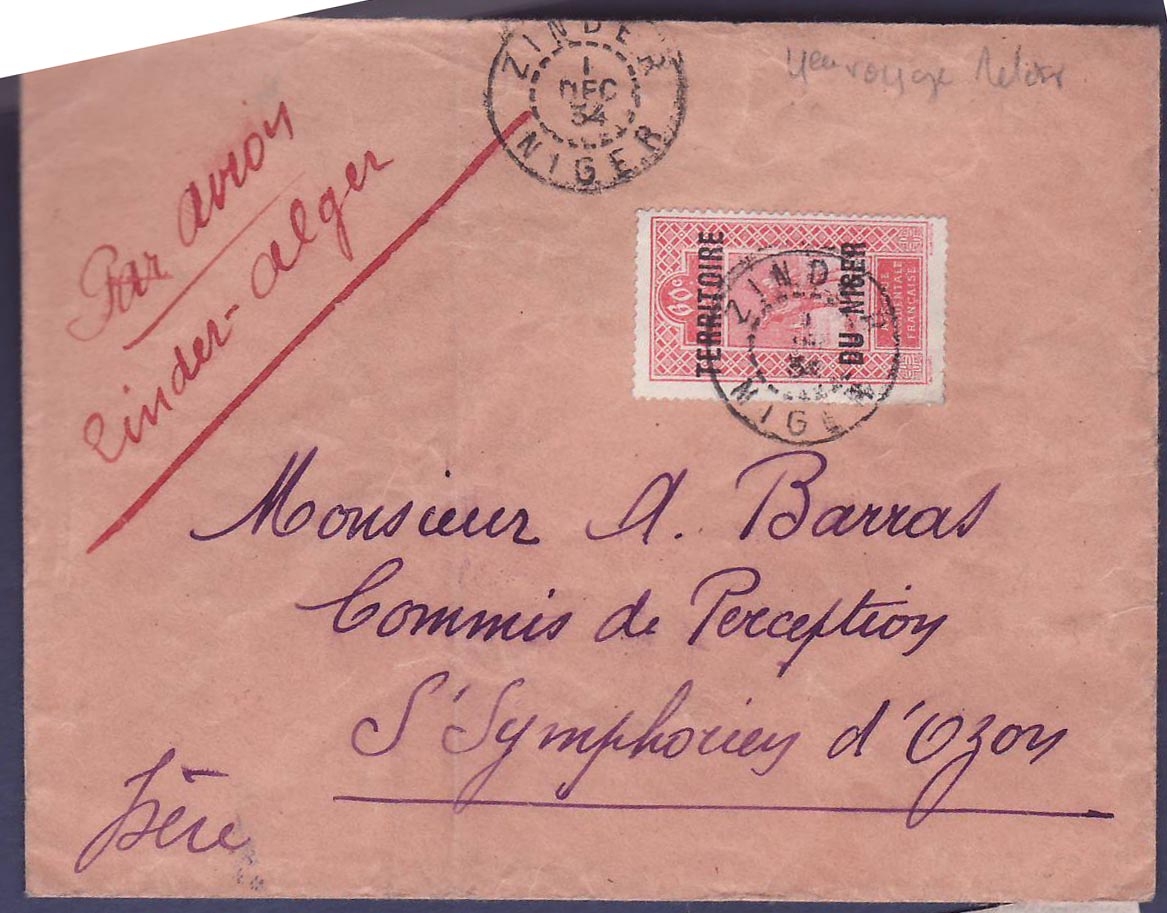 ZINDER
1
DEC
34
NIGER
4eme voyage Retour
Par avion
Zinder-Alger
60c
TERRITOIRE
DU NIGER
AFRIQUE
OCCIDENTALE
FRANÇAISE
ZINDER
1
DEC
34
NIGER
Monsieur A. Barras
Commis de Perception
St Symphorien d'Ozon
Isère